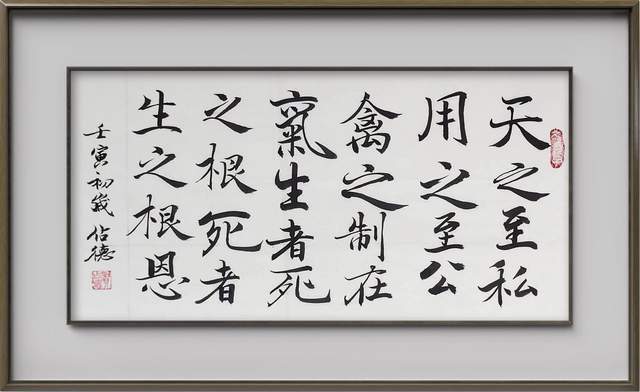 天之至私
用之至公
禽之制在
氣生者死
之根死者
生之根恩
壬寅初歲佔德